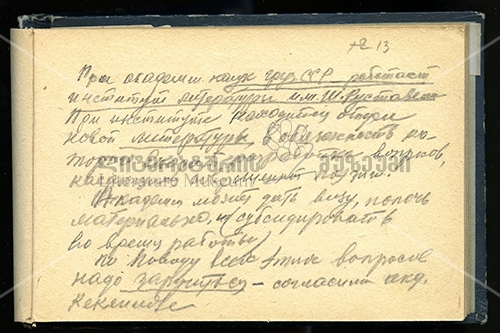 +2 13
При академии наук груз. ССР работает
институт литературы им. Ш. Руставели
При институте находится отдел
новой литературы, в обязанность ко-
торого входит разработка вопросов,
касающихся
Академия может дать визу, помочь
материально, и (субсидировать
во время работы)
по поводу всех этих вопросов
надо заручиться – согласием акад.
Кекелидзе